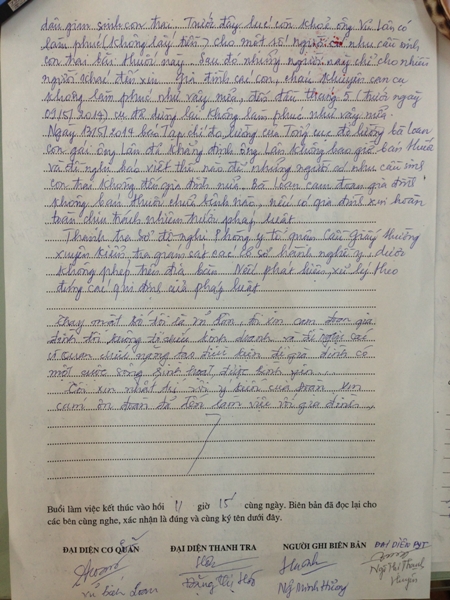 dân gian sinh con trai. Trước đây lúc còn khoẻ ông Vũ Lân có
làm phúc (không lấy tiền) cho một số người có nhu cầu sinh
con trai bài thuốc này. Sau do những người này chỉ cho nhiều
người khác đến xin. Gia đình các con, cháu khuyên can cụ
không làm phúc như vậy nữa, đến đầu tháng 5 (trước ngày
09/5/2019) cụ đã dừng lại không làm phúc như vậy nữa.
Ngày 13/5/2019 ban Tạp chí đo lường của Tổng cục đo lường bà Loan
con gái ông Lân đã khẳng định ông Lân không bao giờ bán thuốc
và đề nghị báo viết thế nào để những người có nhu cầu sinh
con trai không đến gia đình nữa. Bà Loan cam đoan gia đình
không bán thuốc chữa bệnh nào, nếu có gia đình xin hoàn
toàn chịu trách nhiệm trước pháp luật.
Thanh tra Sở đề nghị Phòng y tế quận Cầu Giấy thường
xuyên kiểm tra giám sát các cơ sở hành nghề y dược
không phép trên địa bàn. Nếu phát hiện xử lý theo
đúng các quy định của pháp luật.
Thay mặt bố tôi là Vũ Lân tôi xin cam đoan gia
đình tôi không tổ chức kinh doanh và đề nghị các
cơ quan chức năng tạo điều kiện để gia đình có
một cuộc sống sinh hoạt được bình yên.
Tôi xin nhất trí với ý kiến của đoàn, xin
cảm ơn đoàn đã đến làm việc với gia đình.
Buổi làm việc kết thúc vào hồi 11 giờ 15 cùng ngày. Biên bản đã đọc lại cho
các bên cùng nghe, xác nhận là đúng và cùng ký tên dưới đây.
ĐẠI DIỆN CƠ QUAN ĐẠI DIỆN THANH TRA NGƯỜI GHI BIÊN BẢN ĐẠI DIỆN PYT
Vũ Bích Loan Đặng Thị Hà Ng Minh Hùng Ng Thị Thanh
Huyền